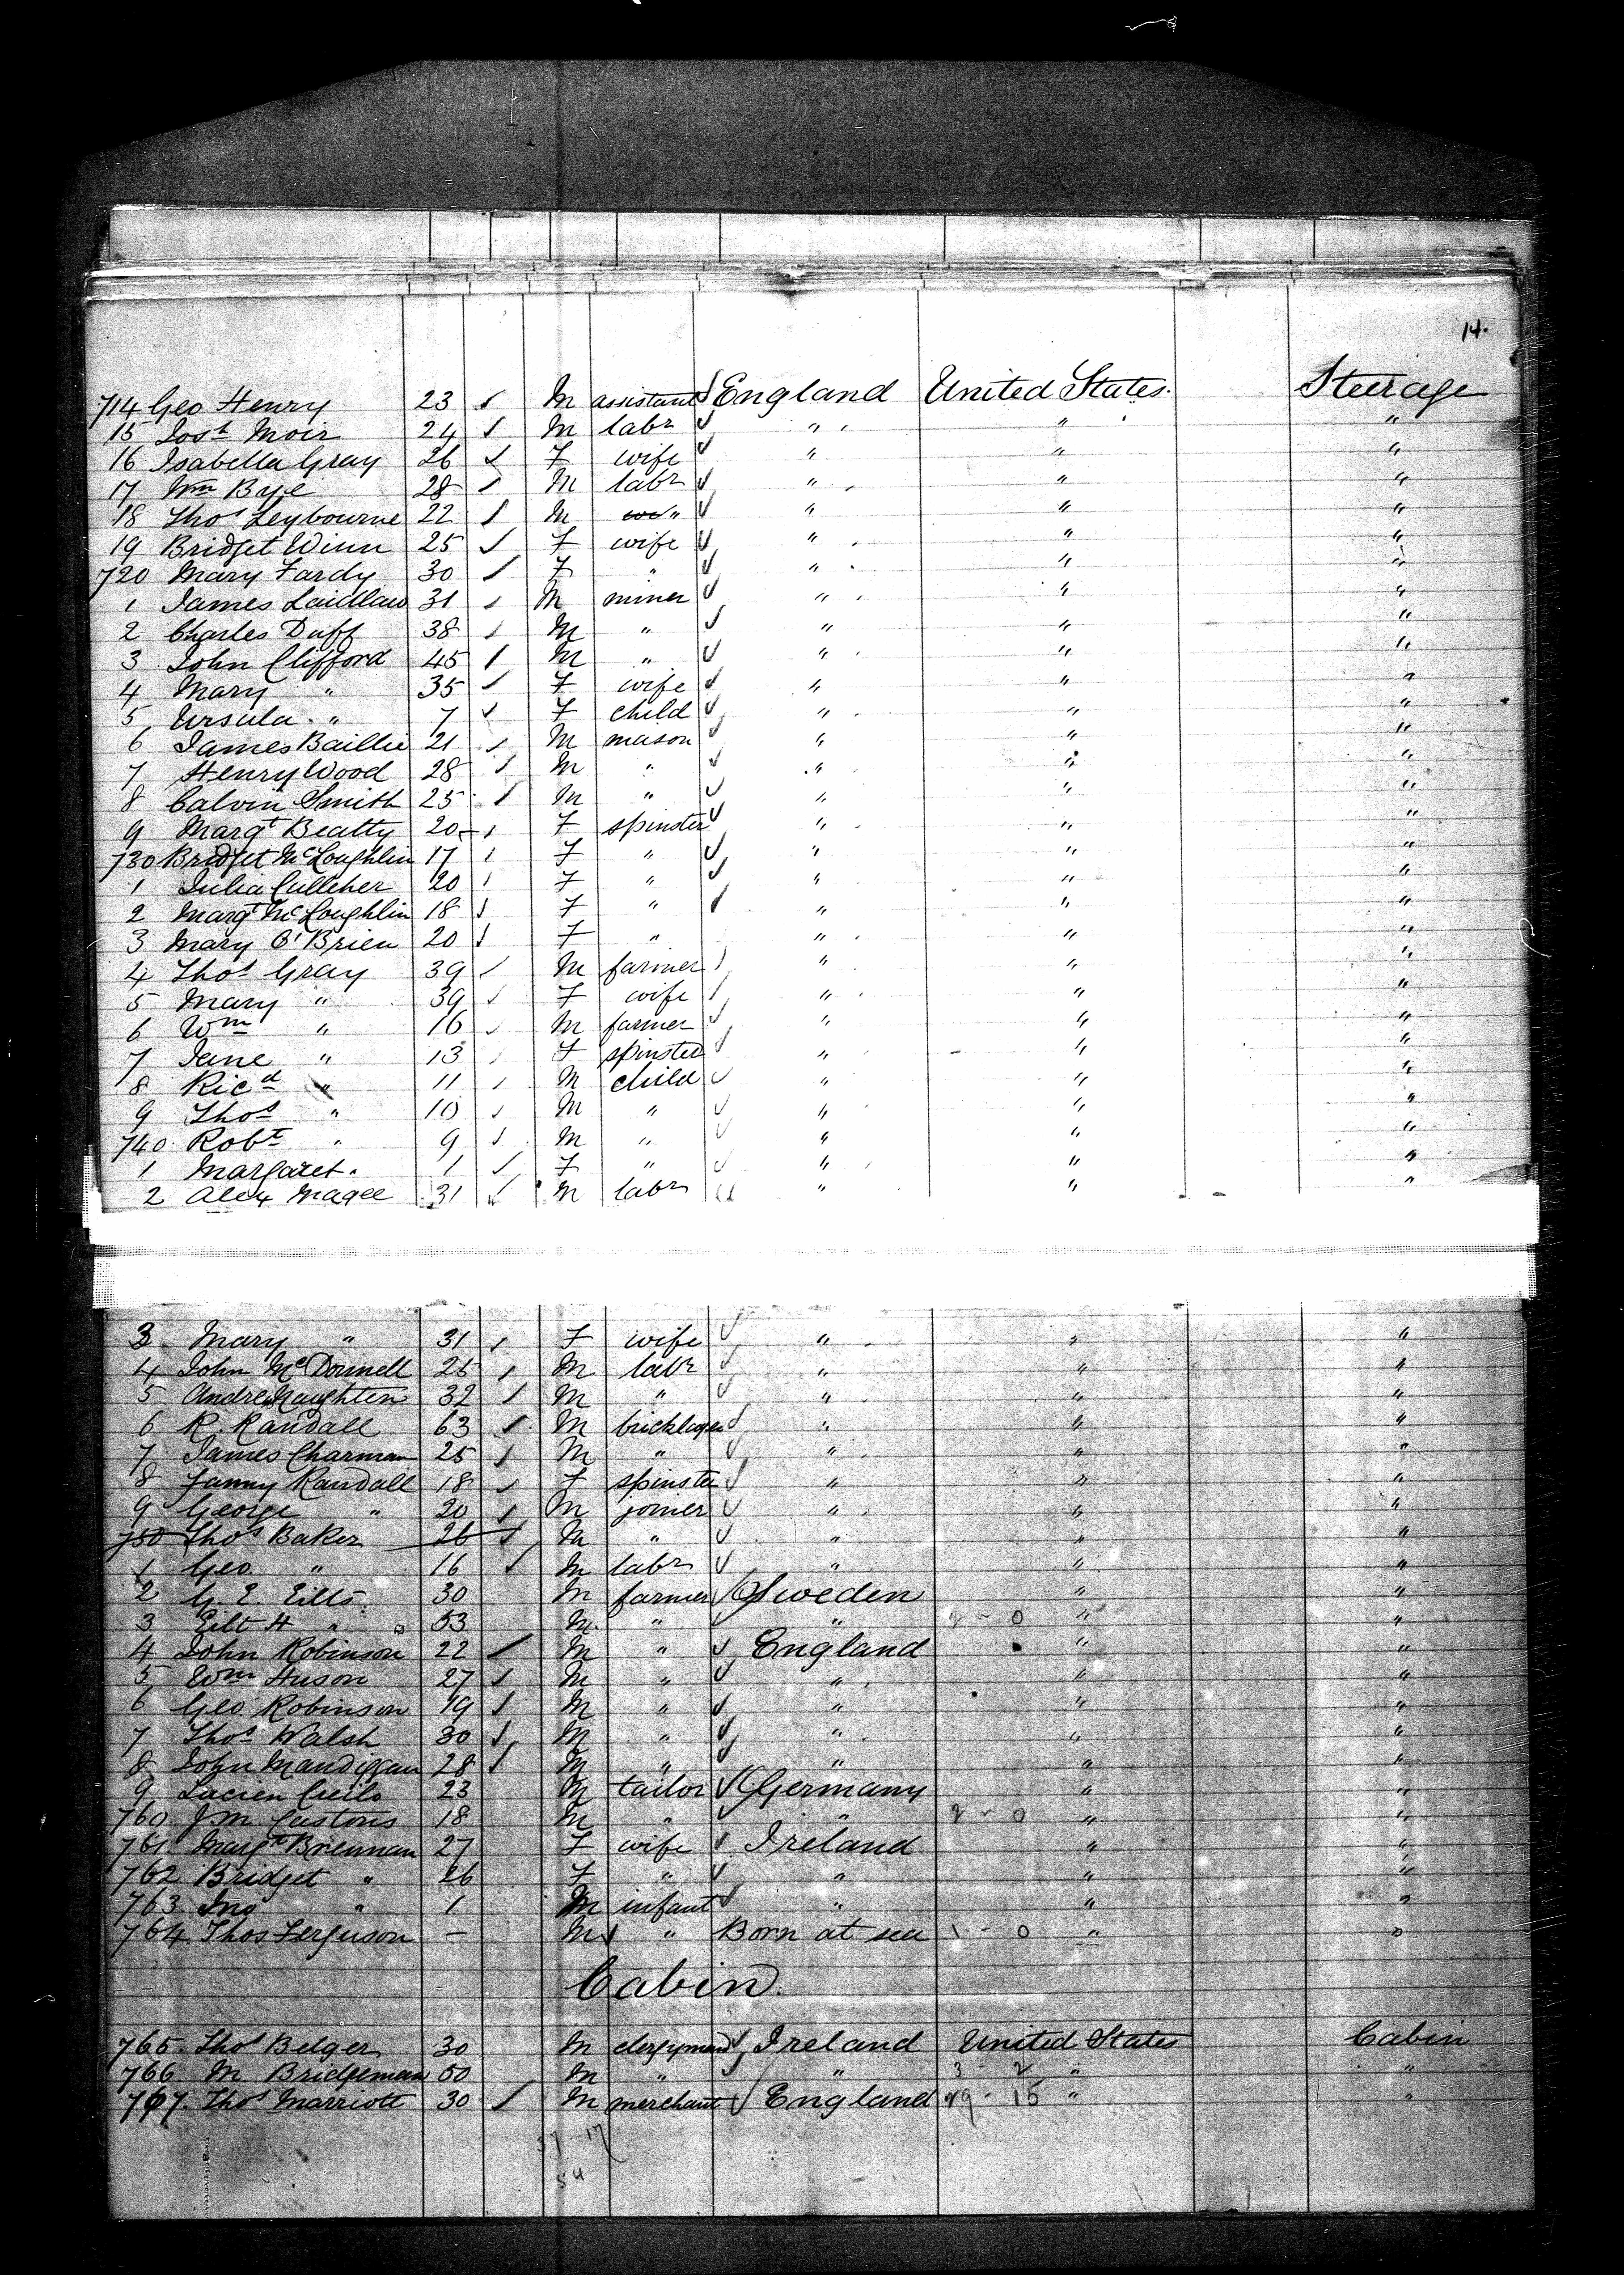 14.
714 Geo Henry 23 ✓ M assistant ✓ England United States. Steerage
15 Jos.h Moir 24 ✓ M labr ✓ " " "
16 Isabella Gray 26 ✓ F wife ✓ " " "
17 Wm Bye 28 ✓ M labr ✓ " " "
18 Thos Leybourne 22 ✓ M " ✓ " " "
19 Bridget Winn 25 ✓ F wife ✓ " " "
720 Mary Fardy 30 ✓ F " ✓ " " "
1 James Laidlaw 31 ✓ M miner ✓ " " "
2 Charles Duff 38 ✓ M " ✓ " " "
3 John Clifford 45 ✓ M " ✓ " " "
4 Mary " 35 ✓ F wife ✓ " " "
5 Ursula " 7 ✓ F child ✓ " " "
6 James Baillie 21 ✓ M mason ✓ " " "
7 Henry Wood 28 ✓ M " ✓ " " "
8 Calvin Smith 25 ✓ M " ✓ " " "
9 Margt Beatty 20 ✓ F spinster ✓ " " "
730 Bridget McLoughlin 17 ✓ F " ✓ " " "
1 Julia Culleher 20 ✓ F " ✓ " " "
2 Margt McLoughlin 18 ✓ F " ✓ " " "
3 Mary O'Brien 20 ✓ F " " " "
4 Thos Gray 39 ✓ M farmer ✓ " " "
5 Mary " 39 ✓ F wife ✓ " " "
6 Wm " 16 ✓ M farmer ✓ " " "
7 Jane " 13 ✓ F spinster ✓ " " "
8 Ricd " 11 ✓ M child ✓ " " "
9 Thos " 10 ✓ M " ✓ " " "
740 Robt " 9 ✓ M " ✓ " " "
1 Margaret " 1 ✓ F " ✓ " " "
2 Alex Magee 31 ✓ M labr ✓ " " "
3 Mary " 31 ✓ F wife ✓ " " "
4 John McDonnell 25 ✓ M labr ✓ " " "
5 Andrew Naughten 32 ✓ M " ✓ " " "
6 R. Randall 63 ✓ M bricklayer ✓ " " "
7 James Charman 25 ✓ M " ✓ " " "
8 Fanny Randall 18 ✓ F spinster ✓ " " "
9 George " 20 ✓ M joiner ✓ " " "
750 Thos Baker 26 ✓ M " ✓ " " "
1 Geo. " 16 ✓ M labr ✓ " " "
2 G. E. Eilts 30 M farmer ✓ Sweden " "
3 Eilt H " 53 M. " ✓ " 2 - 0 " "
4 John Robinson 22 ✓ M " ✓ England " "
5 Wm Huson 27 ✓ M " ✓ " " "
6 Geo Robinson 19 ✓ M " ✓ " " "
7 Thos Walsh 30 ✓ M " ✓ " " "
8 John Mandiggan 28 ✓ M " ✓ " " "
9 Lucien 23 M tailor ✓ Germany " "
760 J.M. Custons 18 M " ✓ " 2 - 0 " "
761. Margt Brennan 27 F wife ✓ Ireland " "
762 Bridget " 26 F " ✓ " " "
763. Jno " 1 M infant ✓ " " "
764. Thos Ferguson - M ✓ " Born at sea 1 - 0 " "
Cabin.
765. Thos Belger 30 M clergyman ✓ Ireland United States Cabin
766 M Bridgeman 50 M " ✓ " 3 - 2 " "
767. Thos Marriott 30 ✓ M merchant ✓ England 29 - 15 " "
37 - 17
54